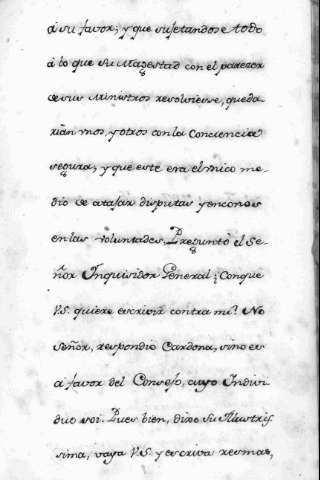 á su favor; y que sujetandose todo
á lo que Su Magestad con el parecer
de sus Ministros resolviesse, queda-
rian unos, y otros con la Conciencia
segura; y que este era el unico me-
dio de atajar disputas y enconos
en las voluntades. Preguntó el Se-
ñor Inquisidor General; Conque
V.S. quiere escrivir contra mi? No
Señor, respondio Cardona, sino es
á favor del Consejo, cuyo Indivi
duo soi. Pues bien, dixo Su Illustris
sima, vaya V.S. y escriva resmas,